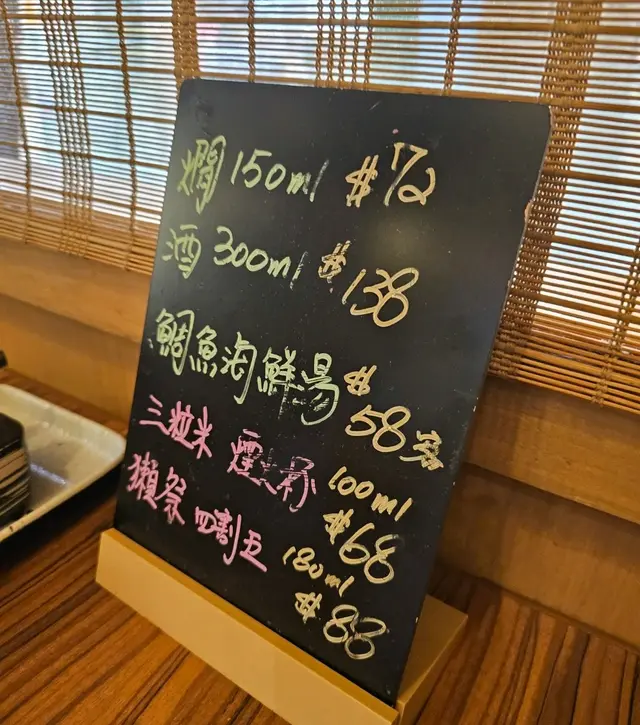 燗 150ml $72
酒 300ml $138
鯛魚海鮮湯 $58
三粒米 100ml $68
獺祭 四割五 180ml $88